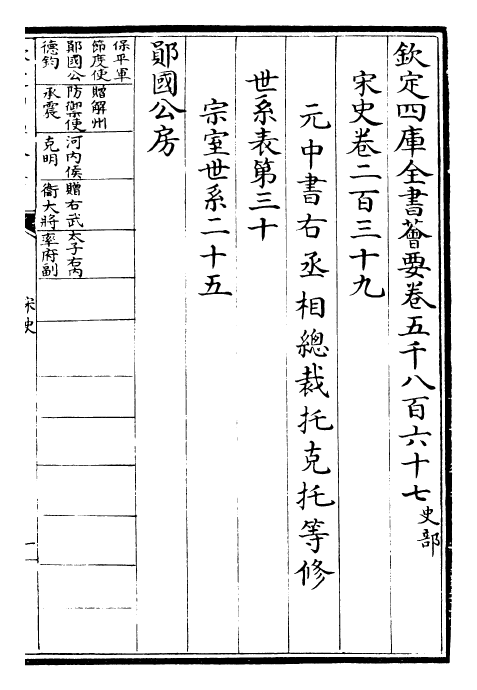 欽定四庫全書薈要卷五千八百六十七 史部
宋史卷二百三十九
元中書右丞相總裁托克托等修
世系表第三十
宗室世系二十五
鄖國公房
保平軍
節度使
鄖國公
德鈞
贈解州
防禦使
承震
河內侯
克明
贈右武
衛大將
太子右內
率府副
宋史